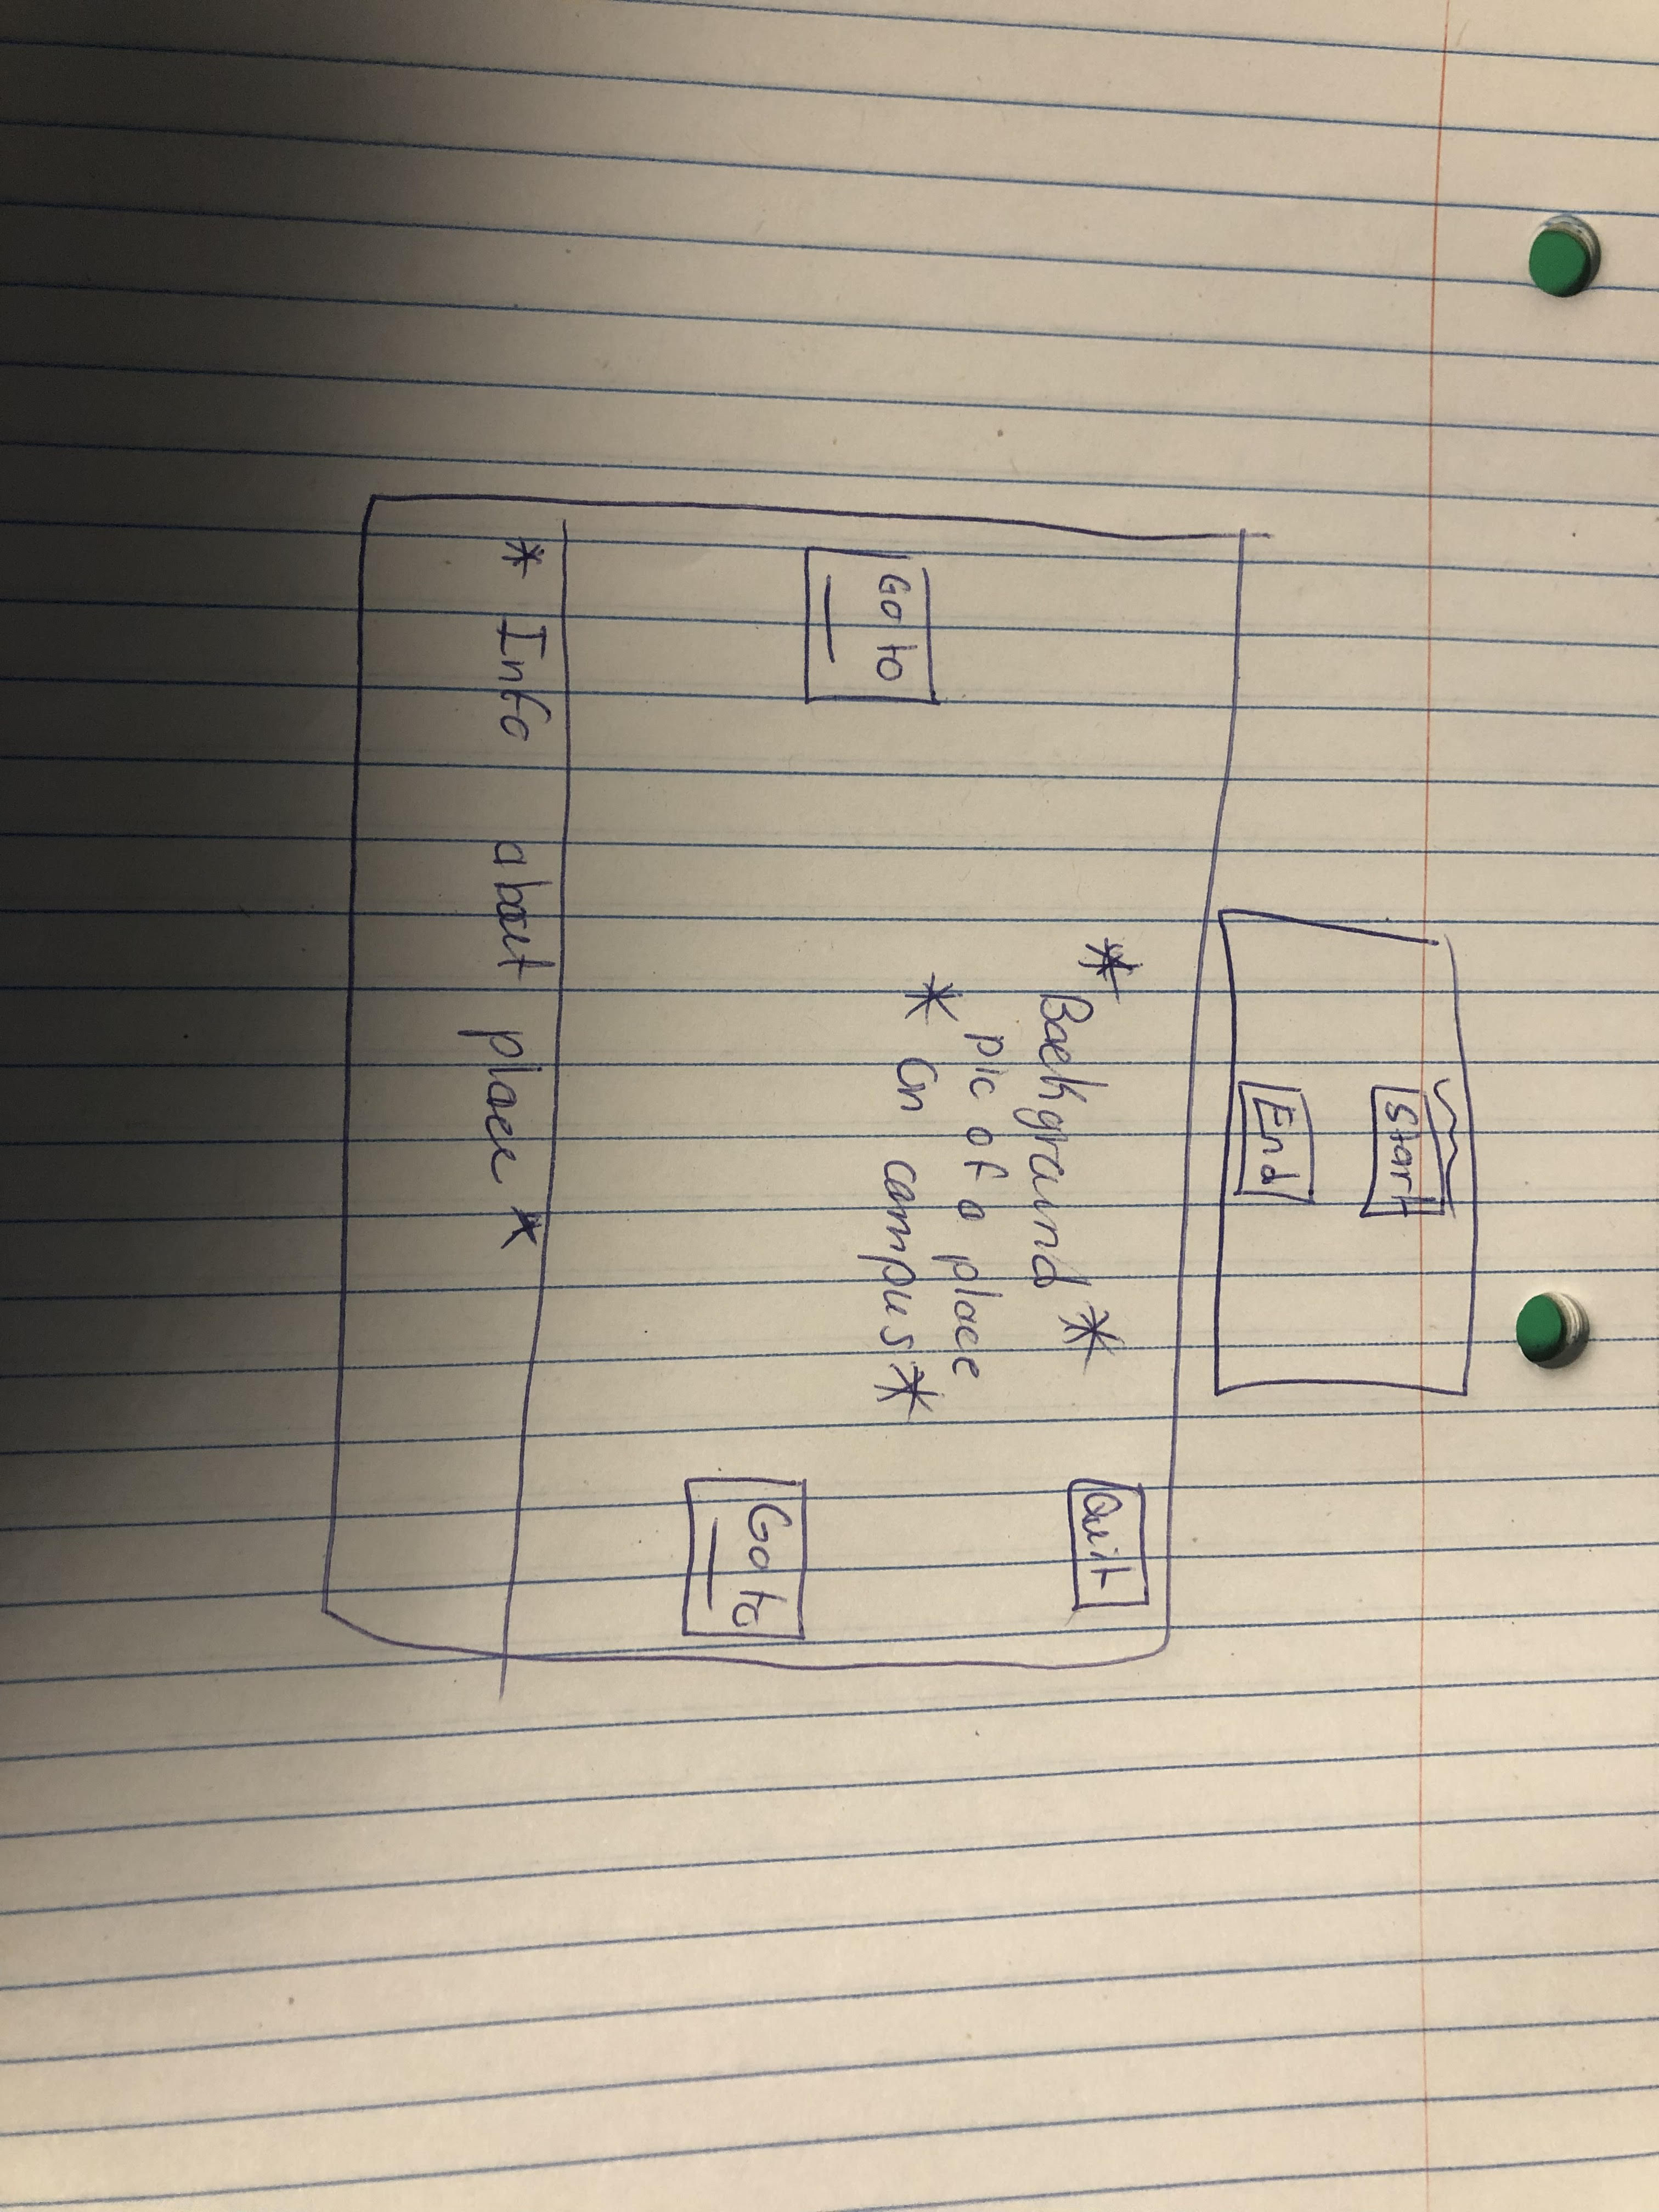 Start
End
Quit
* Background *
pic of a place
* on campus *
Go to
Go to
* Info about place *